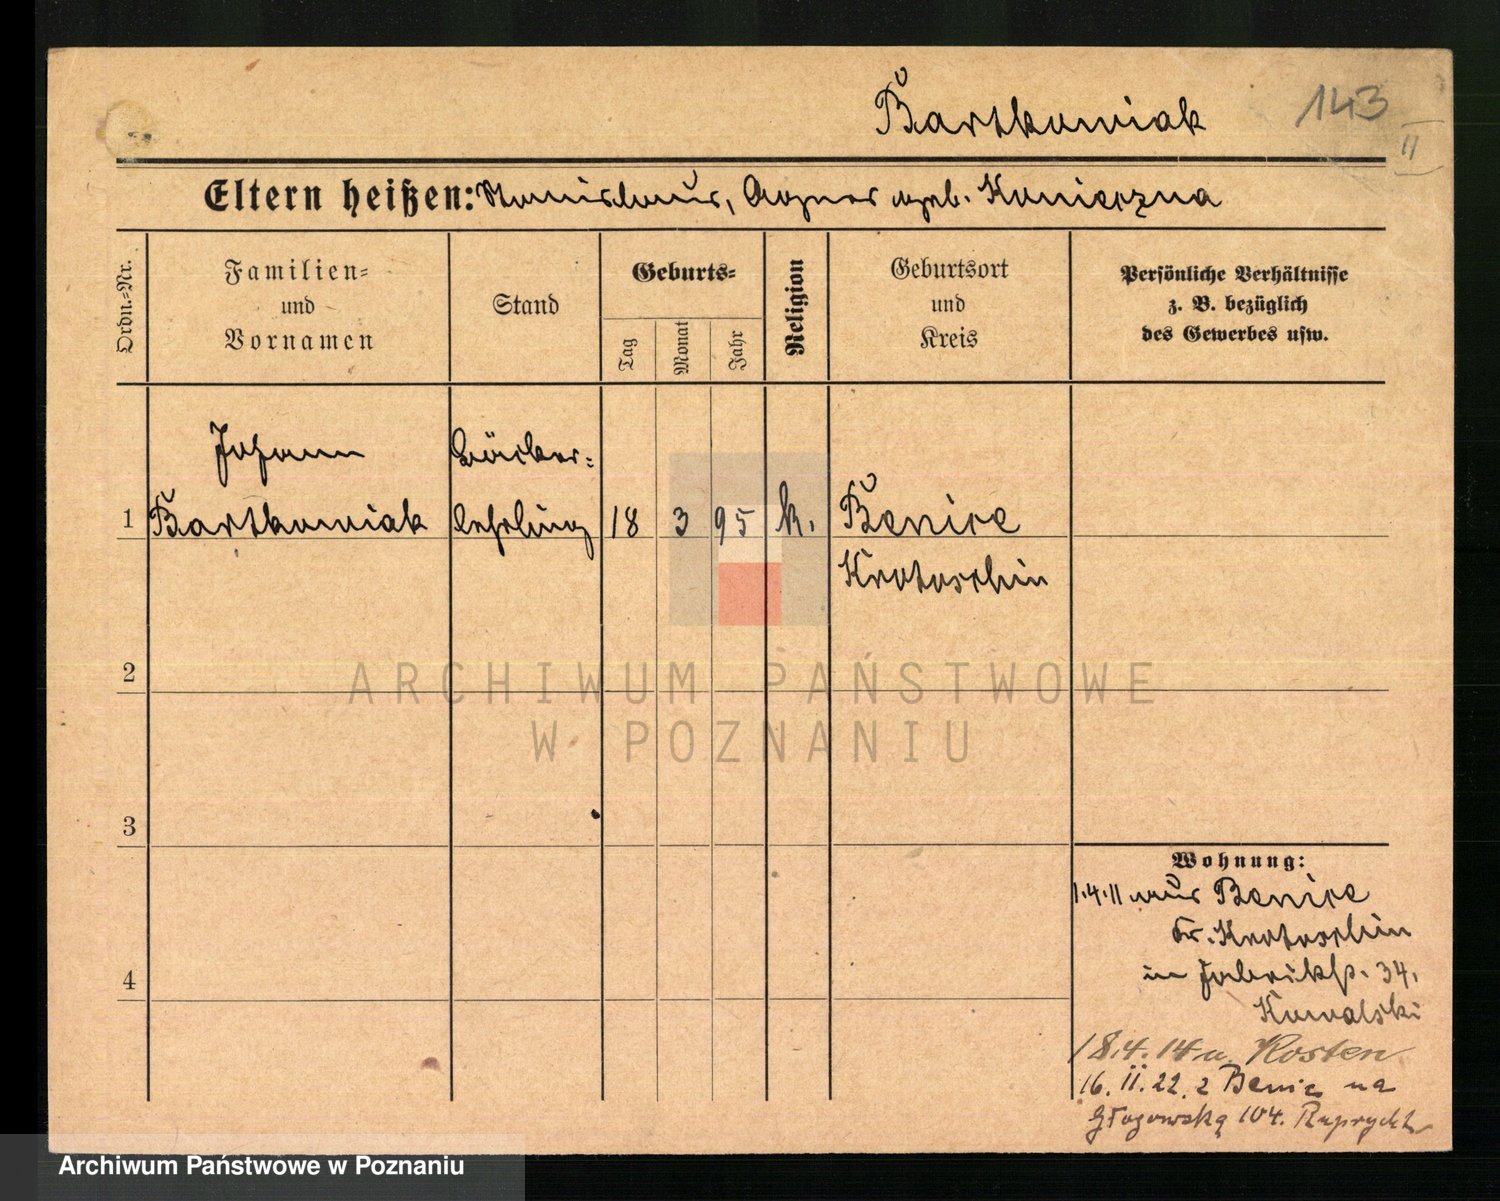 Bartkowiak
143
II
Eltern heißen: Stanislaus, Agnes geb. Konieczna
Ordn.-Nr.
Familien-
und
Vornamen
Stand
Geburts-
Tag
Monat
Jahr
Religion
Geburtsort
und
Kreis
Persönliche Verhältnisse
z. B. bezüglich
des Gewerbes usw.
Johann
Bäcker-
1 Bartkowiak lehrling 18 3 95 k. Benice
Krotoschin
2
3
4
Wohnung:
1.4.11 aus Benice
Kr. Krotoschin
in Fabrikstr. 34.
Kowalski
18.4.14 n. Kosten
16.II.22. z Benic na
Głogowską 104. Ruprycht
ARCHIWUM PAŃSTWOWE
W POZNANIU
Archiwum Państwowe w Poznaniu